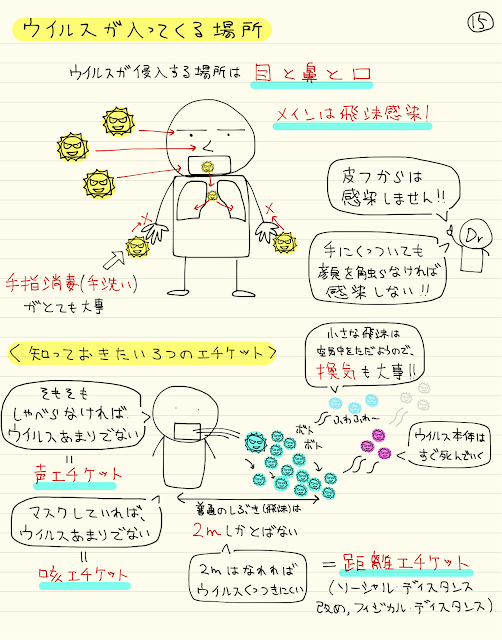 ⑮
ウイルスが入ってくる場所
ウイルスが侵入する場所は 目と鼻と口
メインは飛沫感染!
皮フからは
感染しません!!
Dr
手にくっついても
顔を触らなければ
感染しない!!
手指消毒(手洗い)
がとても大事
<知っておきたい3つのエチケット>
小さな飛沫は
空気中をただようので、
換気も大事!!
そもそも
しゃべらなければ、
ウイルスあまりでない
=
声エチケット
ボト
ボト
ふわふわ~
ウイルス本体は
すぐ死んでいく
マスクしていれば、
ウイルスあまりでない
=
咳エチケット
普通のしぶき(飛沫)は
2mしかとばない
2mはなれれば
ウイルスくっつきにくい
= 距離エチケット
(ソーシャル・ディスタンス
改め,フィジカル・ディスタンス)